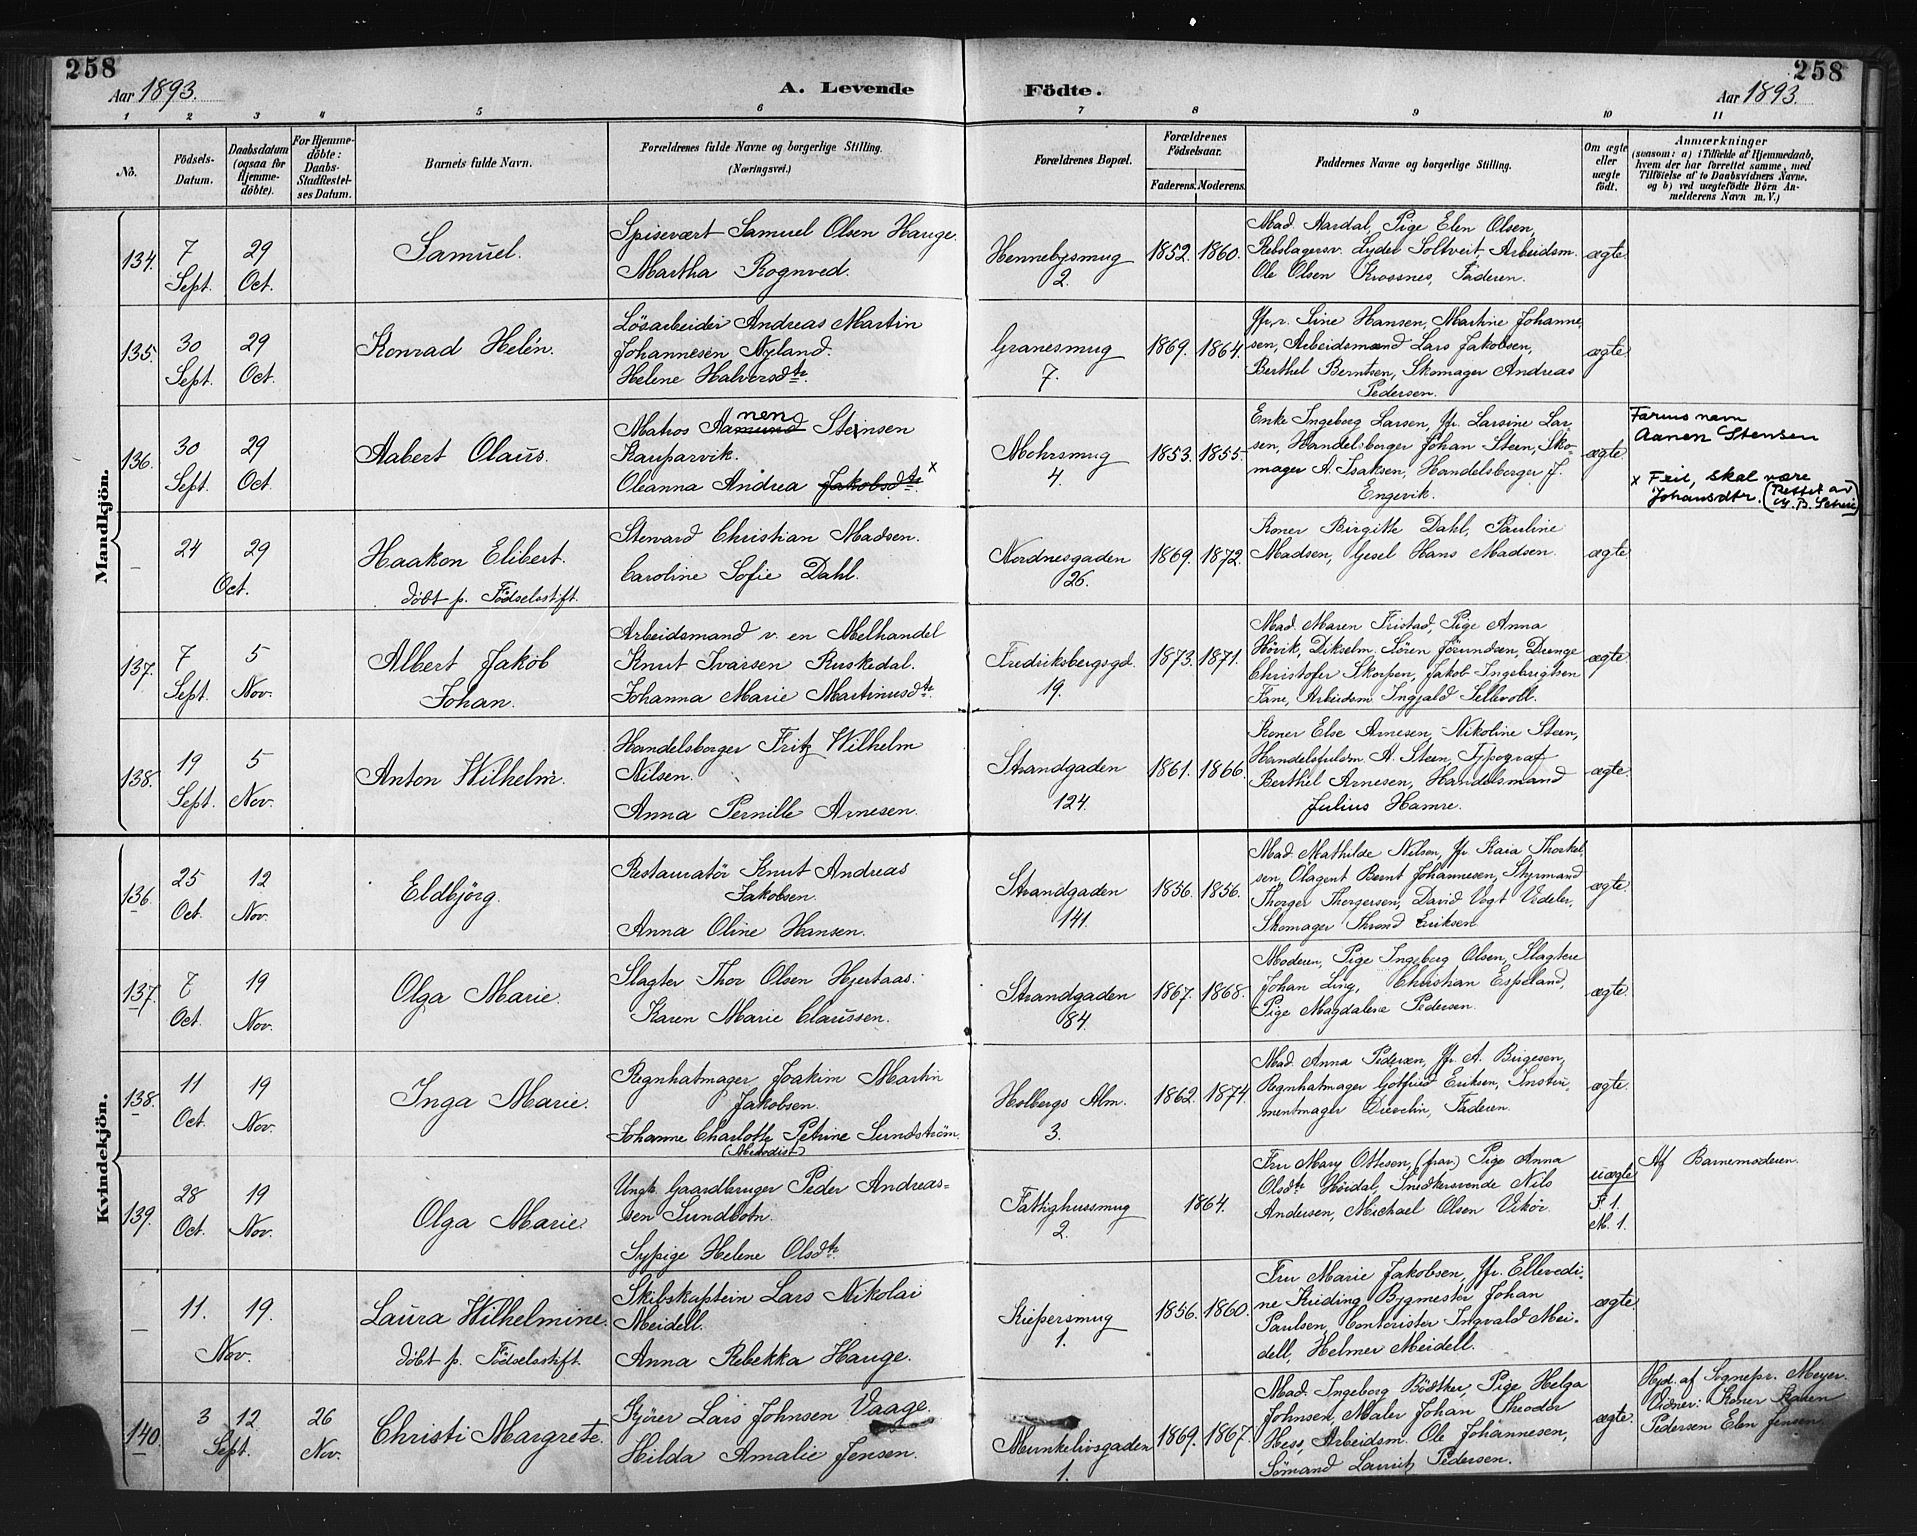 258
258
Aar 1893.
A. Levende
Födte.
Aar 1893.
1 2 3 4 5 6 7 8 9 10 11
No.
Födsels-
Datum.
Daabsdatum
(ogsaa for
Hjemme-
döbte).
For Hjemme-
döbte:
Daabs-
Stadfæstel-
ses Datum.
Barnets fulde Navn.
Forældrenes fulde Navne og borgerlige Stilling.
(Næringsvei.)
Forældrenes Bopæl.
Forældrenes
Födselsaar.
Faderens. Moderens.
Faddernes Navne og borgerlige Stilling.
Om ægte
eller
uægte
födt.
Anmærkninger
(saasom: a) i Tilfælde af Hjemmedaab,
hvem der har forrettet samme, med
Tilföielse af to Daabsvidners Navne,
og b) ved uægtefödte Börn An-
melderens Navn m. V.)
Mandkjön.
134.
7
Sept.
29
Oct.
Samuel.
Spisevært Samuel Olsen Hauge.
Martha Rognved.
Hennebysmug
2.
1852. 1860.
Mad. Aardal, Pige Elen Olsen,
Rebslagersv. Lyder Soltveit, Arbeidsm.
Ole Olsen Krossnes, Faderen.
ægte.
135.
30
Sept.
29
Oct.
Konrad Helén.
Lösarbeider Andreas Martin
Johannesen Nyland.
Helene Halversdtr.
Granesmug
7.
1869. 1864.
Jfr.r. Sine Hansen, Martine Johanne-
sen, Arbeidsmænd Lars Jakobsen,
Berthel Berntsen, Skomager Andreas
Pedersen.
ægte.
136.
30
Sept.
29
Oct.
Aabert Olaus.
nen
Matros Aamund Steinsen
Kauparvik.
Oleanna Andrea Jakobsdtr. x
Mohrsmug
4.
1853. 1855.
Enke Ingeborg Larsen, Jfr. Larsine Lar-
sen, Handelsborger Johan Steen, Sko-
mager A. Isaksen, Handelsberger J.
Engevik.
ægte.
Farens navn
Aanen Stensen
x Feil, skal være
Johansdtr. (Rettet av
24
29
Oct.
Haakon Elibert.
döbt p. Födselsstift.
Steward Christian Madsen.
Caroline Sofie Dahl.
Nordnesgaden
26.
1869. 1872.
Koner Birgitte Dahl, Pauline
Madsen, Gesel Hans Madsen.
ægte.
137.
7
Sept.
5
Nov.
Albert Jakob
Johan.
Arbeidsmand v. en Melhandel
Knut Ivarsen Ruskedal.
Johanna Marie Martinusdtr.
Fredriksbergsgd.
19.
1873. 1871.
Mad. Maren Fristad, Pige Anna
Hövik, Dikselm. Sören Jörundsen, Drenge
Christofer Skorpen, Jakob Ingebrigtsen
Fane, Arbeidsm. Ingjald Sellevoll.
ægte.
138.
19
Sept.
5
Nov.
Anton Wilhelm.
Handelsborger Fritz Wilhelm
Nilsen.
Anna Pernille Arnesen.
Strandgaden
124.
1861. 1866.
Koner Else Arnesen, Nikoline Steen,
Handelsfuldm. A. Steen, Typograf
Berthel Arnesen, Handelsmand
Julius Hamre.
ægte.
Kvindekjön.
136.
25
Oct.
12
Nov.
Eldbjörg.
Restauratör Knut Andreas
Jakobsen.
Anna Oline Hansen.
Strandgaden
141.
1856. 1856.
Mad. Mathilde Nilsen, Jfr. Kaia Thorkel-
sen, Ölagent Bernt Johannesen, Styrmand
Thorger Thorgersen, David Vogt Vedeler,
Skomager Thrond Eriksen.
ægte.
137.
7
Oct.
19
Nov.
Olga Marie.
Slagter Thor Olsen Hjertaas.
Karen Marie Claussen.
Strandgaden
84.
1867. 1868.
Moderen, Pige Ingeborg Olsen, Slagtere
Johan Ling, Christian Espeland,
Pige Magdalene Pedersen.
ægte.
138.
11
Oct.
19
Nov.
Inga Marie.
Regnhatmager Joakim Martin
Jakobsen.
Johanne Charlotte Petrine Sundström.
(Methodist)
Holbergs Alm.
3.
1862. 1874.
Mad. Anna Pedersen, Jfr. A. Birgesen,
Regnhatmager Gotfried Eriksen, Instru-
mentmager Dievelin, Faderen.
ægte.
139.
28
Oct.
19
Nov.
Olga Marie.
Ungk. Gaardbruger Peder Andreas-
sen Sundbotn.
Sypige Helene Olsdtr.
Fattighussmug
2.
1864.
Fru Mary Ottesen, (frav.) Pige Anna
Olsdtr. Hördal, Snedkersvende Nils
Andersen, Michael Olsen Vikör.
uægte
F. 1.
M. 1.
Af Barnemoderen.
11.
19.
Nov.
Laura Wilhelmine.
döbt p. Födselsstift.
Skibskaptein Lars Nikolai
Meidell.
Anna Rebekka Hauge.
Kiepersmug
1.
1856. 1860.
Fru Marie Jakobsen, Jfr. Ellevedi-
ne Kriding, Bygmester Johan
Paulsen, Contorister Ingvald Mei-
dell, Helmer Meidell.
ægte.
140.
3
12
Sept.
26
Nov.
Christi Margrete.
Kjörer Lars Johnsen Vaage.
Hilda Amalie Jensen.
Munkelivsgaden
1.
1869. 1867.
Mad. Ingeborg Bödtker, Pige Helga
Johnsen, Maler Johan Theodor
Hess, Arbeidsm. Ole Johannesen,
Sömand Lauritz Pedersen.
ægte.
Hjd. af Sognepr. Meyer.
Vidner: Koner Karen
Pedersen Elen Jensen